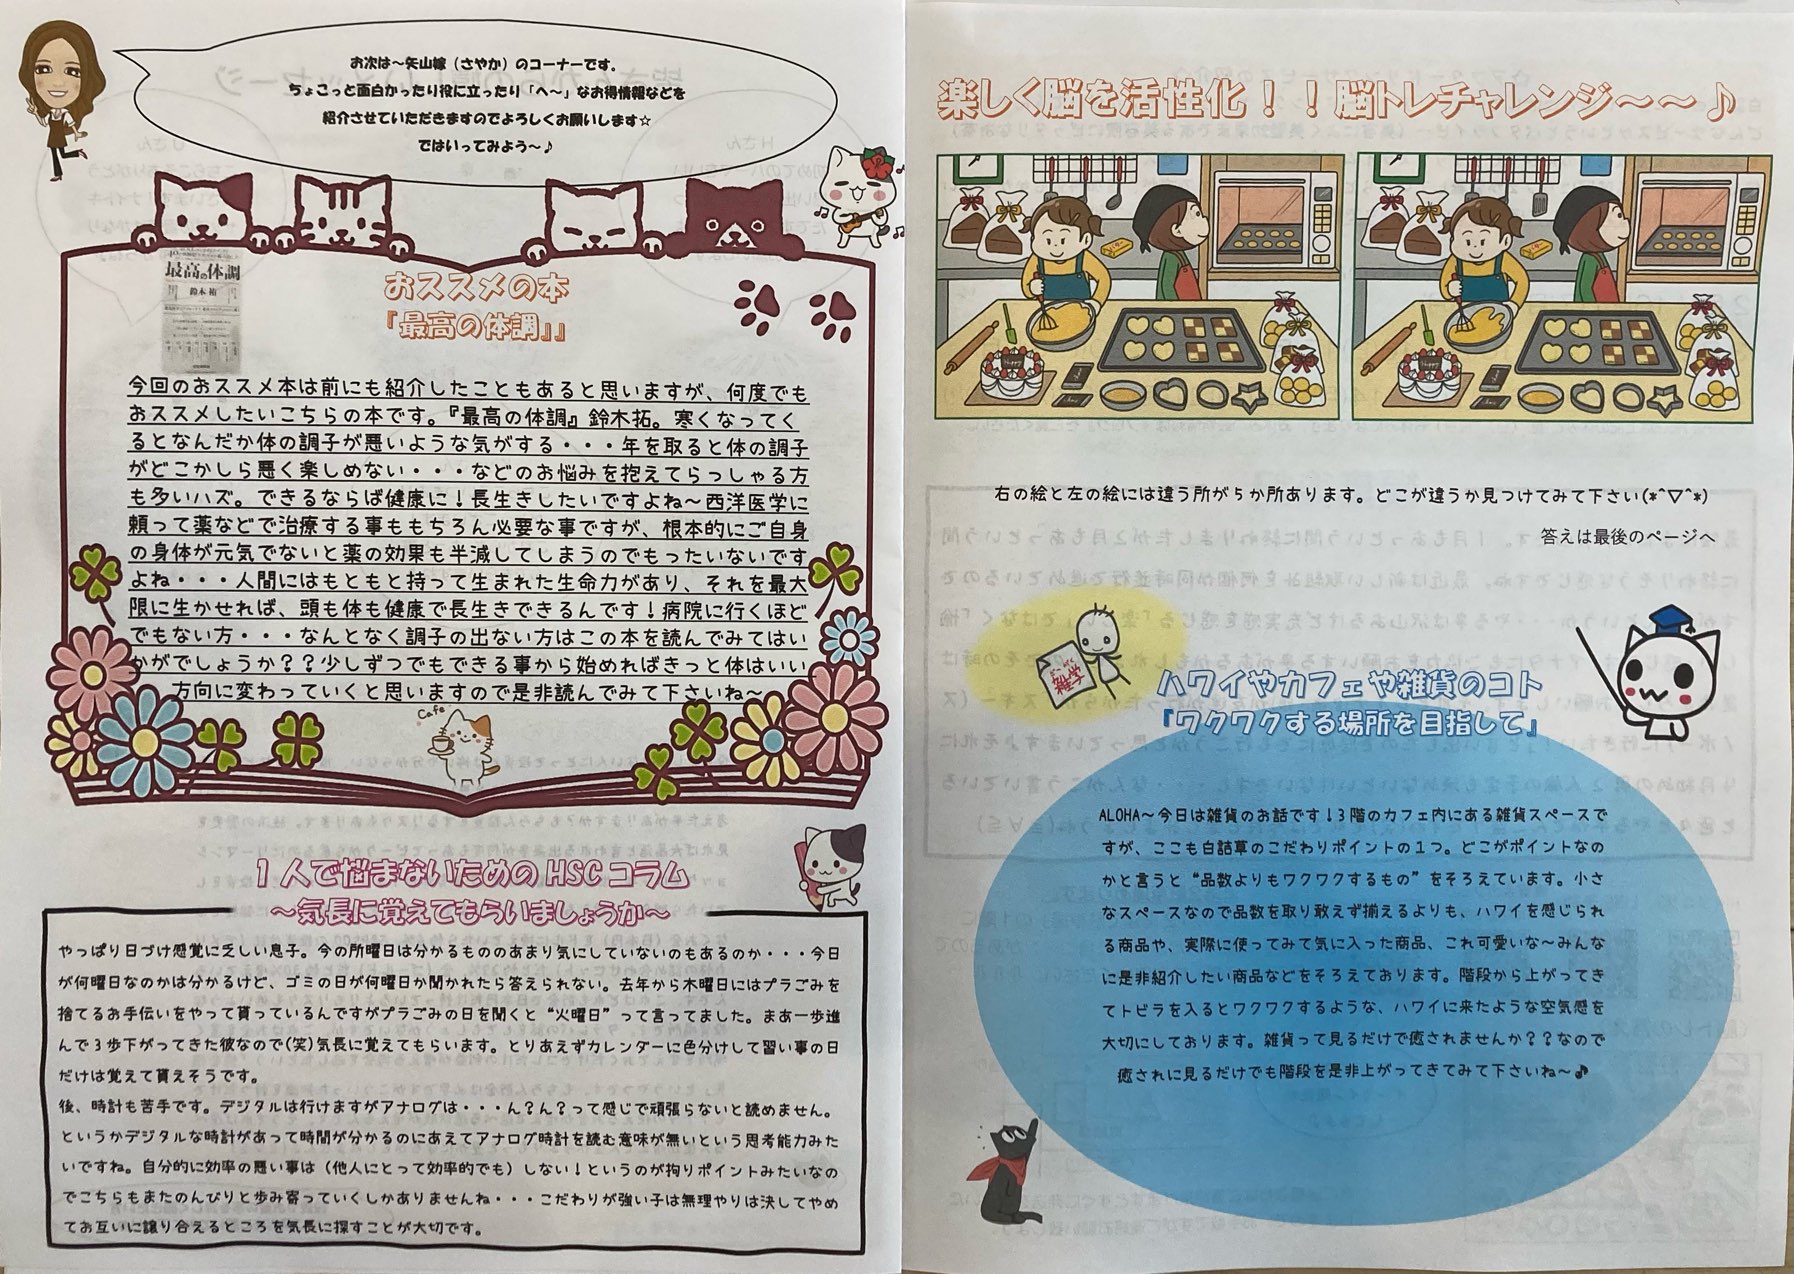 お次は～矢山嫁（さやか）のコーナーです。
ちょこっと面白かったり役に立ったり「へ～」なお得情報などを
紹介させていただきますのでよろしくお願いします☆
ではいってみよう～♪
最高の体調
鈴木祐
おススメの本
『最高の体調』』
今回のおススメ本は前にも紹介したこともあると思いますが、何度でも
おススメしたいこちらの本です。『最高の体調』鈴木拓。寒くなってく
るとなんだか体の調子が悪いような気がする・・・年を取ると体の調子
がどこかしら悪く楽しめない・・・などのお悩みを抱えてらっしゃる方
も多いハズ。できるならば健康に！長生きしたいですよね～西洋医学に
頼って薬などで治療する事ももちろん必要な事ですが、根本的にご自身
の身体が元気でないと薬の効果も半減してしまうのでもったいないです
よね・・・人間にはもともと持って生まれた生命力があり、それを最大
限に生かせれば、頭も体も健康で長生きできるんです！病院に行くほど
でもない方・・・なんとなく調子の出ない方はこの本を読んでみてはい
かがでしょうか？？少しずつでもできる事から始めればきっと体はいい
方向に変わっていくと思いますので是非読んでみて下さいね～
Cafe
1人で悩まないためのHSCコラム
～気長に覚えてもらいましょうか～
やっぱり日づけ感覚に乏しい息子。今の所曜日は分かるもののあまり気にしていないのもあるのか・・・今日
が何曜日なのかは分かるけど、ゴミの日が何曜日か聞かれたら答えられない。去年から木曜日にはプラごみを
捨てるお手伝いをやって貰っているんですがプラごみの日を聞くと“火曜日”って言ってました。まあ一歩進
んで3歩下がってきた彼なので(笑)気長に覚えてもらいます。とりあえずカレンダーに色分けして習い事の日
だけは覚えて貰えそうです。
後、時計も苦手です。デジタルは行けますがアナログは・・・ん？ん？って感じで頑張らないと読めません。
というかデジタルな時計があって時間が分かるのにあえてアナログ時計を読む意味が無いという思考能力みた
いですね。自分的に効率の悪い事は（他人にとって効率的でも）しない！というのが拘りポイントみたいなの
でこちらもまたのんびりと歩み寄っていくしかありませんね・・・こだわりが強い子は無理やりは決してやめ
てお互いに譲り合えるところを気長に探すことが大切です。
楽しく脳を活性化！！脳トレチャレンジ～～♪
右の絵と左の絵には違う所が5か所あります。どこが違うか見つけてみて下さい(*^▽^*)
答えは最後のページへ
雑学
ハワイやカフェや雑貨のコト
『ワクワクする場所を目指して』
ALOHA～今日は雑貨のお話です！3階のカフェ内にある雑貨スペースで
すが、ここも白詰草のこだわりポイントの1つ。どこがポイントなの
かと言うと“品数よりもワクワクするもの”をそろえています。小さ
なスペースなので品数を取り敢えず揃えるよりも、ハワイを感じられ
る商品や、実際に使ってみて気に入った商品、これ可愛いな～みんな
に是非紹介したい商品などをそろえております。階段から上がってき
てトビラを入るとワクワクするような、ハワイに来たような空気感を
大切にしております。雑貨って見るだけで癒されませんか？？なので
癒されに見るだけでも階段を是非上がってきてみて下さいね～♪